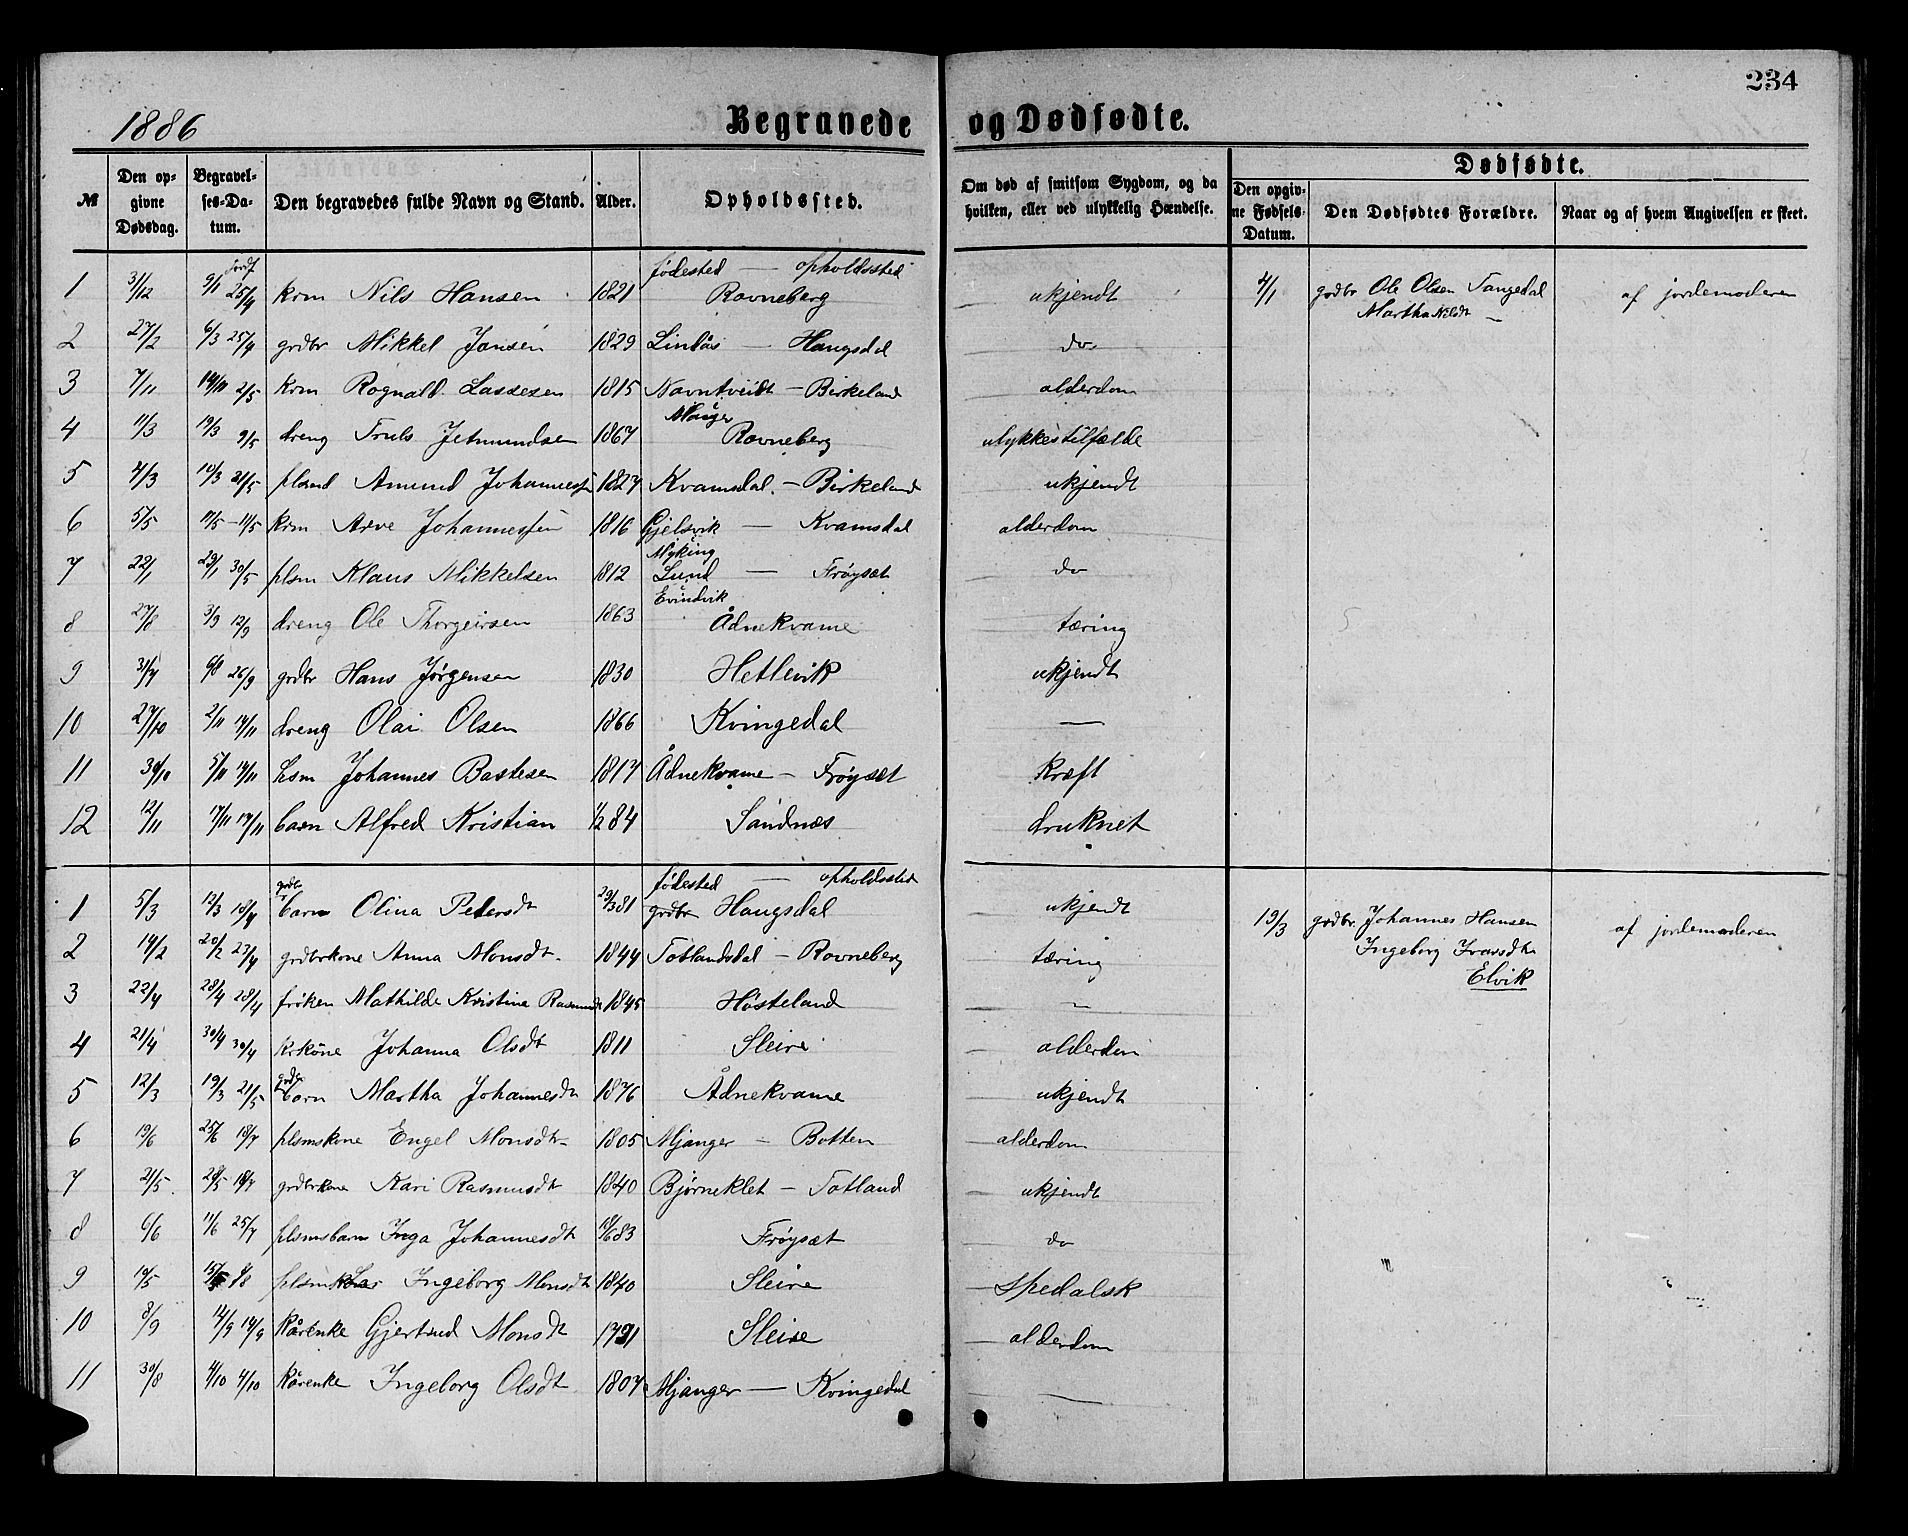 234
1886 Begravede og Dødfødte.
№ Den opgivne Dødsdag. Begravelses-Datum. Den begravedes fulde Navn og Stand. Alder. Opholdssted. Om død af smitsom Sygdom, og da hvilken, eller ved ulykkelig Hændelse. Dødfødte. Den opgivne Fødsels-Datum. Den Dødfødtes Forældre. Naar og af hvem Angivelsen er skeet.
fødested — opholdssted
1 31/12 9/1 jordf 25/4 krm Nils Hansen 1821 Rovneberg ukjendt 4/1 grdbr Ole Olsen Tangedal af jordemoderen
Martha Nilsdt —
2 27/2 6/3 25/4 grdbr Mikkel Jansen 1829 Lindås — Haugsdal do
3 7/11 14/11 2/5 krm Rognald Lassesen 1815 Navntveidt — Birkeland alderdom
4 11/3 19/3 9/5 dreng Truls Jetmundsen 1867 Manger Rovneberg ulykkestilfælde
5 4/3 10/3 21/5 plsmd Amund Johannessen 1827 Kvamsdal — Birkeland ukjendt
6 5/5 11/5 — 11/5 krm Arve Johannessen 1816 Gjelsvik — Kvamsdal alderdom
7 22/1 29/1 30/5 plsm Klaus Mikkelsen 1812 Myking Lund — Frøyset do
8 27/8 3/9 12/9 dreng Ole Thorgeirsen 1863 Evindvik Ådnekvame tæring
9 31/7 6/8 26/9 grdbr Hans Jørgensen 1830 Hetlevik ukjendt
10 27/10 2/11 14/11 dreng Olai Olsen 1866 Kvingedal —
11 30/10 5/11 14/11 hsm Johannes Bastesen 1817 Ådnekvame — Frøyset kræft
12 12/11 17/11 17/11 barn Alfred Kristian 1/2 84 Sandnæs druknet
fødested — opholdssted
1 5/3 12/3 18/4 grdbr barn Olina Petersdt 29/3 81 grdbr Haugsdal ukjendt 19/3 grdbr. Johannes Hansen af jordemoderen
Ingeborg Ivarsdt
Elvik
2 14/2 20/2 27/4 grdbrkone Anna Monsdt. 1844 Totlandsdal — Rovneberg tæring
3 22/4 28/4 28/4 frøken Mathilde Kristine 1845 Hosteland —
4 21/4 30/4 30/4 krkone Johanna Olsdt 1811 Sleire alderdom
5 12/3 19/3 21/5 grdbr barn Martha Johannesdt 1876 Ådnekvame ukjendt
6 19/6 25/6 18/7 plsmskone Engel Monsdt 1805 Mjanger — Botten alderdom
7 21/5 28/5 18/7 grdbrkone Kari Rasmusdt 1840 Bjørneklet — Totland ukjendt
8 6/6 11/6 25/7 plsmsbarn Inga Johannesdt 10/6 83 Frøyset do
9 10/5 15/5 8/8 plsm Ingeborg Monsdt 1840 Sleire spedalsk
10 8/9 14/9 14/9 kårenke Gjertrud Monsdt 1791 Sleire alderdom
11 30/8 4/10 4/10 kårenke Ingeborg Olsdt 1807 Mjanger — Kvingedal —